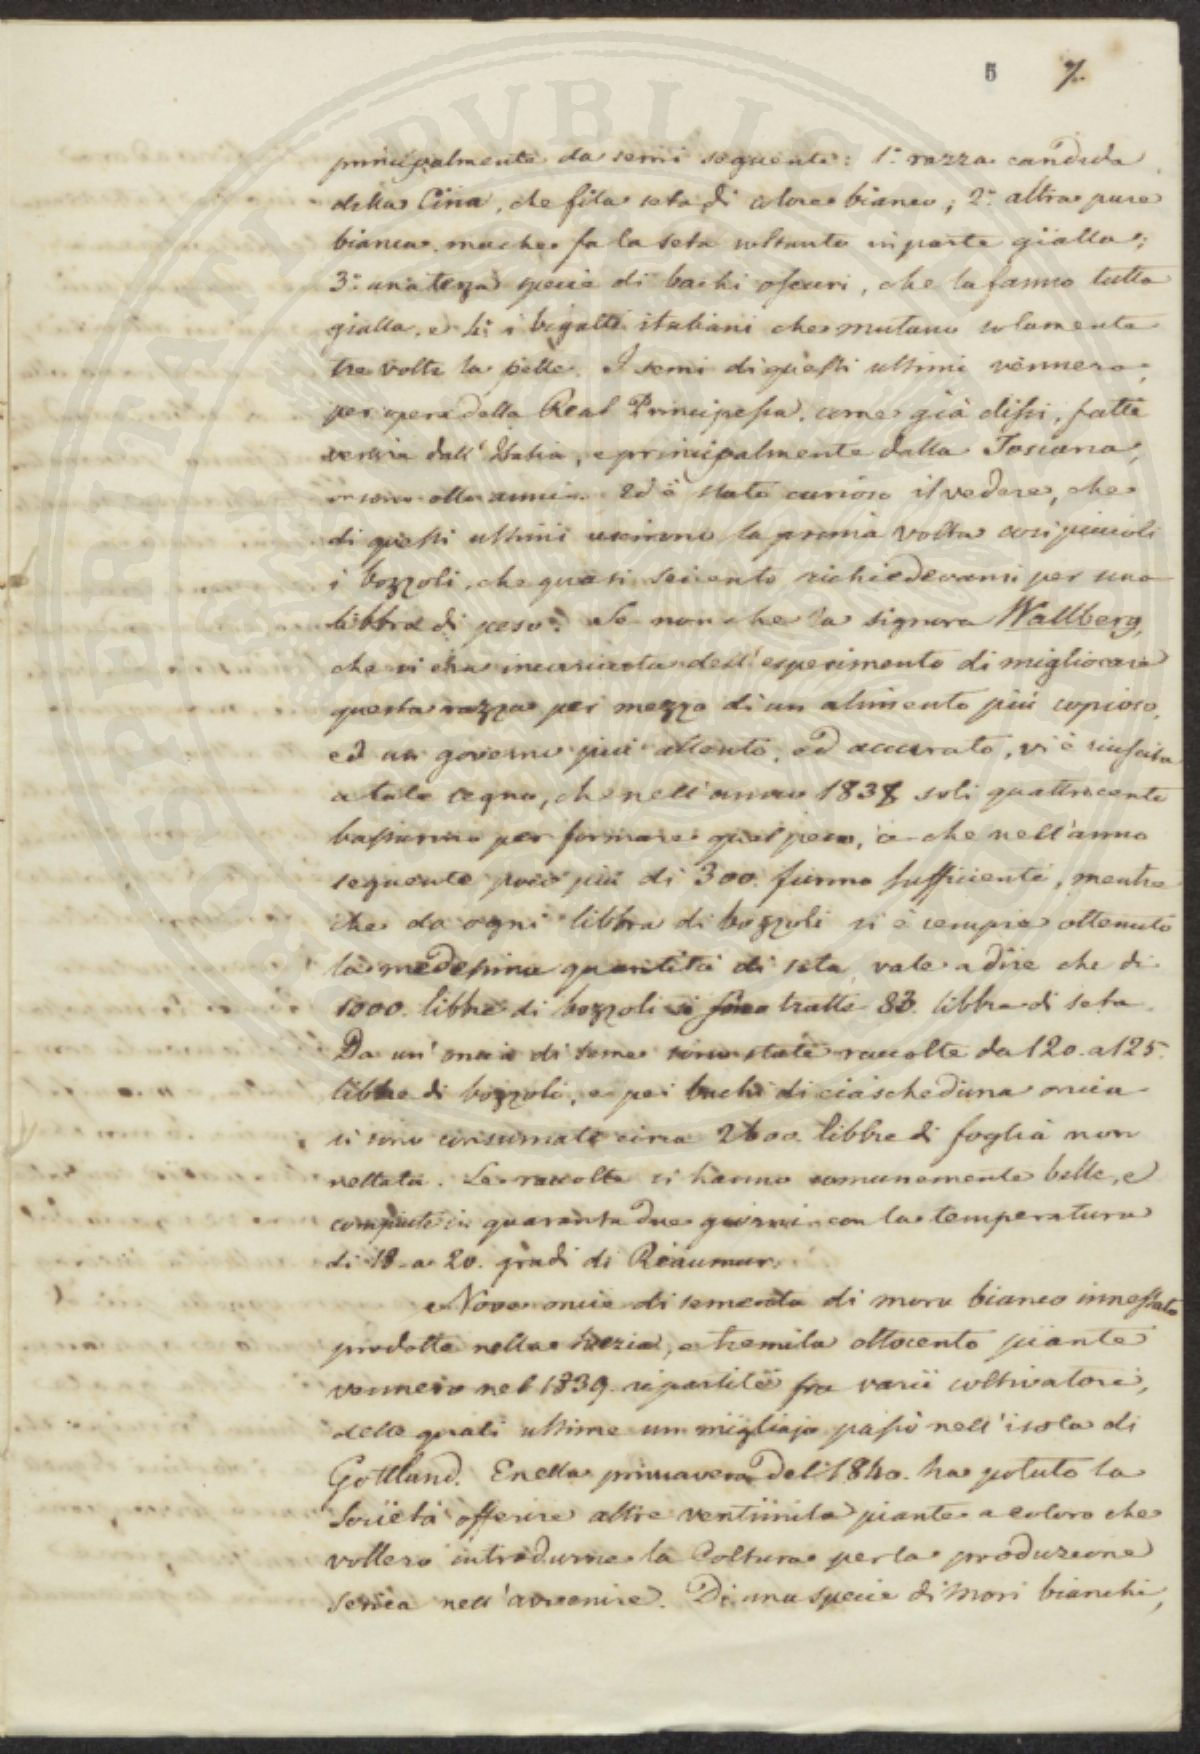 5 7.
principalmente da semi seguenti: 1º razza candida
della Cina, che fila seta di colore bianco; 2º altra pure
bianca, ma che fa la seta soltanto in parte gialla;
3º una terza specie di bachi oscuri, che la fanno tutta
gialla, e 4º i bigatti italiani che mutano solamente
tre volte la pelle. I semi di questi ultimi vennero,
per opera della Real Principessa, come già dissi, fatti
venire dall'Italia, e principalmente dalla Toscana,
or sono otto anni. Ed è stato curioso il vedere, che
di questi ultimi uscirono la prima volta così piccioli
i bozzoli, che quasi seicento richiedevansi per una
libbra di peso. Se non che la signora Wallberg,
che si era incaricata dell'esperimento di migliorare
questa razza per mezzo di un alimento più copioso,
ed un governo più attento, ed accurato, vi è riuscita
a tale segno, che nell'anno 1838 soli quattrocento
bastarono per formare quel peso, e che nell'anno
seguente poco più di 300. furono sufficienti, mentre
che da ogni libbra di bozzoli si è sempre ottenuto
la medesima quantità di seta, vale a dire che di
1000. libbre di bozzoli si sono tratte 83. libbre di seta.
Da un'oncia di seme sono state raccolte da 120. a 125.
libbre di bozzoli, e pei bachi di ciascheduna oncia
si sono consumate circa 2400. libbre di foglia non
nettata. Le raccolte si hanno comunemente belle, e
compiute in quaranta due giorni con la temperatura
di 18. a 20. gradi di Réaumur.
Nove oncie di semente di moro bianco innestato
prodotte nella Svezia, e tremila ottocento piante
vennero nel 1839. ripartite fra varii coltivatori,
delle quali ultime un migliajo passò nell'isola di
Gottland. E nella primavera del 1840. ha potuto la
Società offerire altre ventimila piante a coloro che
vollero introdurne la coltura per la produzione
serica nell'avvenire. Di una specie di Mori bianchi,